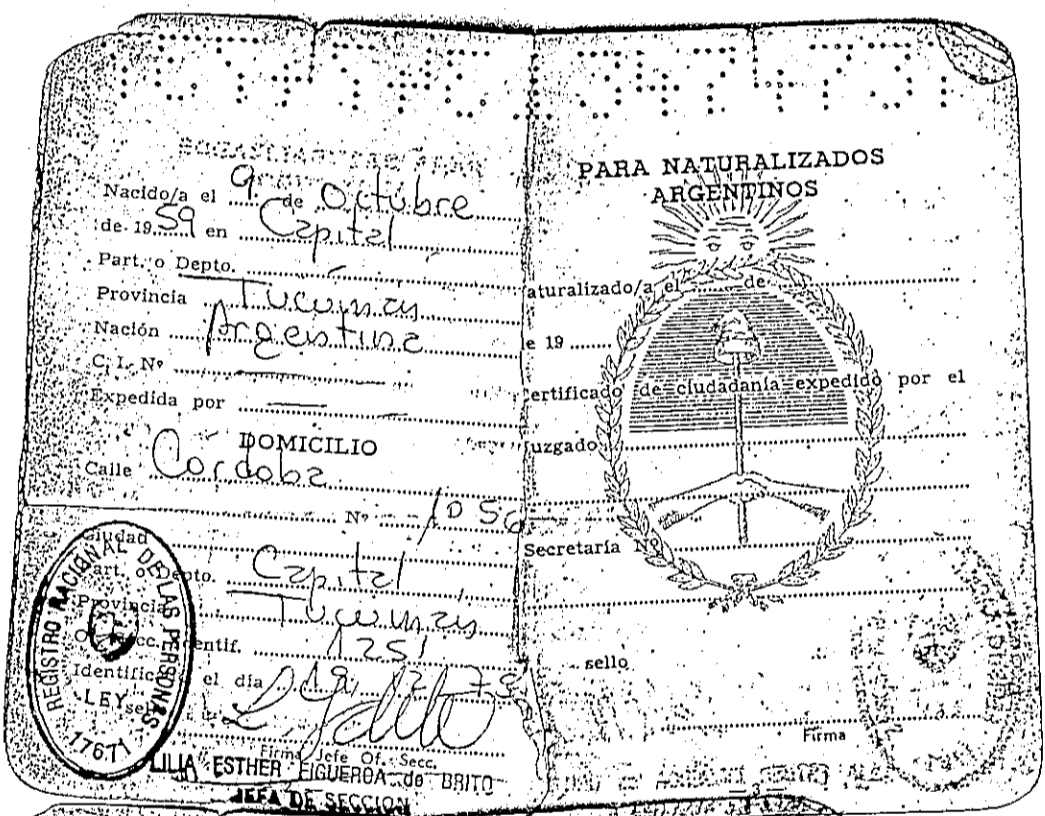 Nacido/a el 9 de Octubre
de 1959 en Capital
Part. o Depto.
Provincia Tucuman
Nación Argentina
C. I. Nº
Expedida por
DOMICILIO
Calle Cordoba
Nº 1056
Ciudad
Part. o Depto. Capital
Provincia Tucuman
Of. Secc. Identif. 1251
Identific el día 19
Firma Jefe Of. Secc.
LILIA ESTHER FIGUEROA de BRITO
JEFA DE SECCION
REGISTRO NACIONAL DE LAS PERSONAS
LEY
17671
PARA NATURALIZADOS
ARGENTINOS
aturalizado/a el de
e 19
ertificado de ciudadanía expedido por el
uzgado
Secretaría Nº
sello
Firma
3